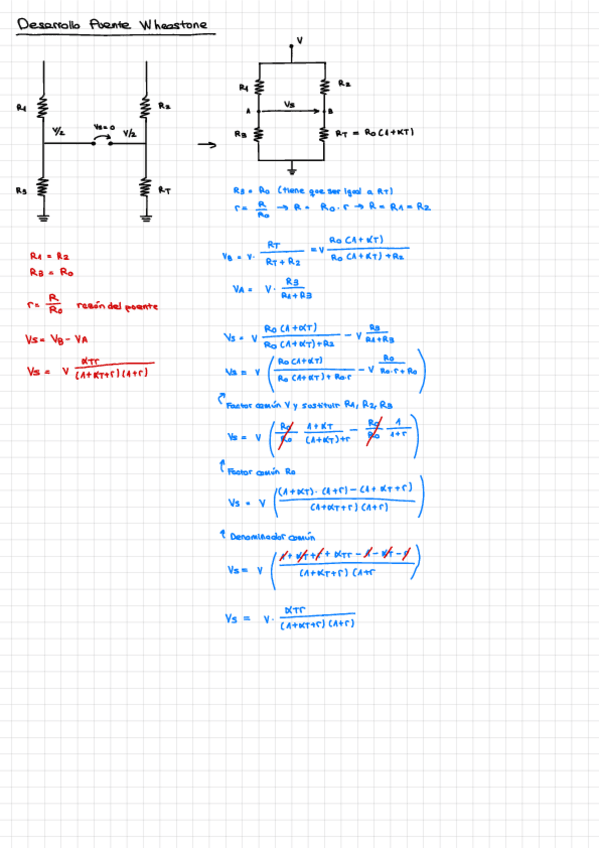 Desarrollo Puente Wheastone
R1
R2
Vs=0
V/2
V/2
R3
RT
V
R1
R2
A
Vs
B
R3
RT = R0(1+αT)
R3 = R0 (tiene que ser igual a RT)
r = R/R0 → R = R0·r → R = R1 = R2
R1 = R2
R3 = R0
r = R/R0 razón del puente
Vs = VB - VA
Vs = V αTr/((1+αT+r)(1+r))
VB = V· RT/(RT+R2) = V R0(1+αT)/(R0(1+αT)+R2)
VA = V· R3/(R1+R3)
Vs = V R0(1+αT)/(R0(1+αT)+R2) - V R3/(R1+R3)
Vs = V (R0(1+αT)/(R0(1+αT)+R0·r) - V R0/(R0·r+R0))
Factor común V y sustituir R1, R2, R3
Vs = V (R0/R0 (1+αT)/((1+αT)+r) - R0/R0 1/(1+r))
Factor común R0
Vs = V (((1+αT)·(1+r)-(1+αT+r))/((1+αT+r)(1+r)))
Denominador común
Vs = V ((1+αT+r+αTr-1-αT-r)/((1+αT+r)(1+r))
Vs = V· αTr/((1+αT+r)(1+r))